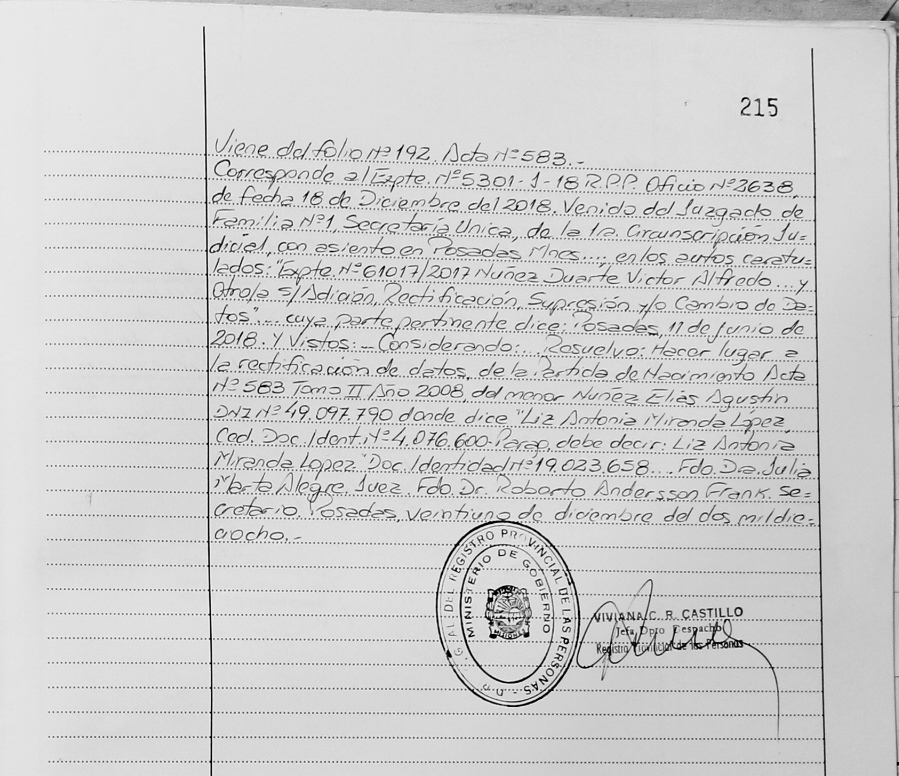 215
Viene del folio Nº 192. Acta Nº 583.-
Corresponde al Expte. Nº 5301-J-18 R.P.P. Oficio Nº 2638,
de fecha 18 de Diciembre del 2018. Venido del Juzgado de
Familia Nº 1, Secretaría Unica, de la 1ra. Circunscripción Ju-
dicial, con asiento en Posadas Mnes..., en los autos caratu-
lados: "Expte. Nº 61017/2017 Nuñez Duarte Victor Alfredo... y
Otro/a s/Adición, Rectificación, Supresión y/o Cambio de Da-
tos"... cuya parte pertinente dice: Posadas, 11 de junio de
2018. Y Vistos:... Considerando:... Resuelvo: Hacer lugar a
la rectificación de datos, de la Partida de Nacimiento Acta
Nº 583 Tomo II Año 2008, del menor Nuñez Elias Agustín
DNI Nº 49.097.790 donde dice "Liz Antonia Miranda López,
Ced. Doc. Ident. Nº 4.076.600-Parag, debe decir: Liz Antonia
Miranda Lopez" Doc. Identidad Nº 19.023.658... Fdo. Dra. Julia
Marta Alegre. Juez. Fdo. Dr. Roberto Andersson Frank. Se-
cretario. Posadas, veintiuno de diciembre del dos mil die-
ciocho.-
D.P. GRAL. DEL REGISTRO PROVINCIAL DE LAS PERSONAS
MINISTERIO DE GOBIERNO
VIVIANA C. R. CASTILLO
Jefa Dpto Despacho
Registro Provincial de las Personas